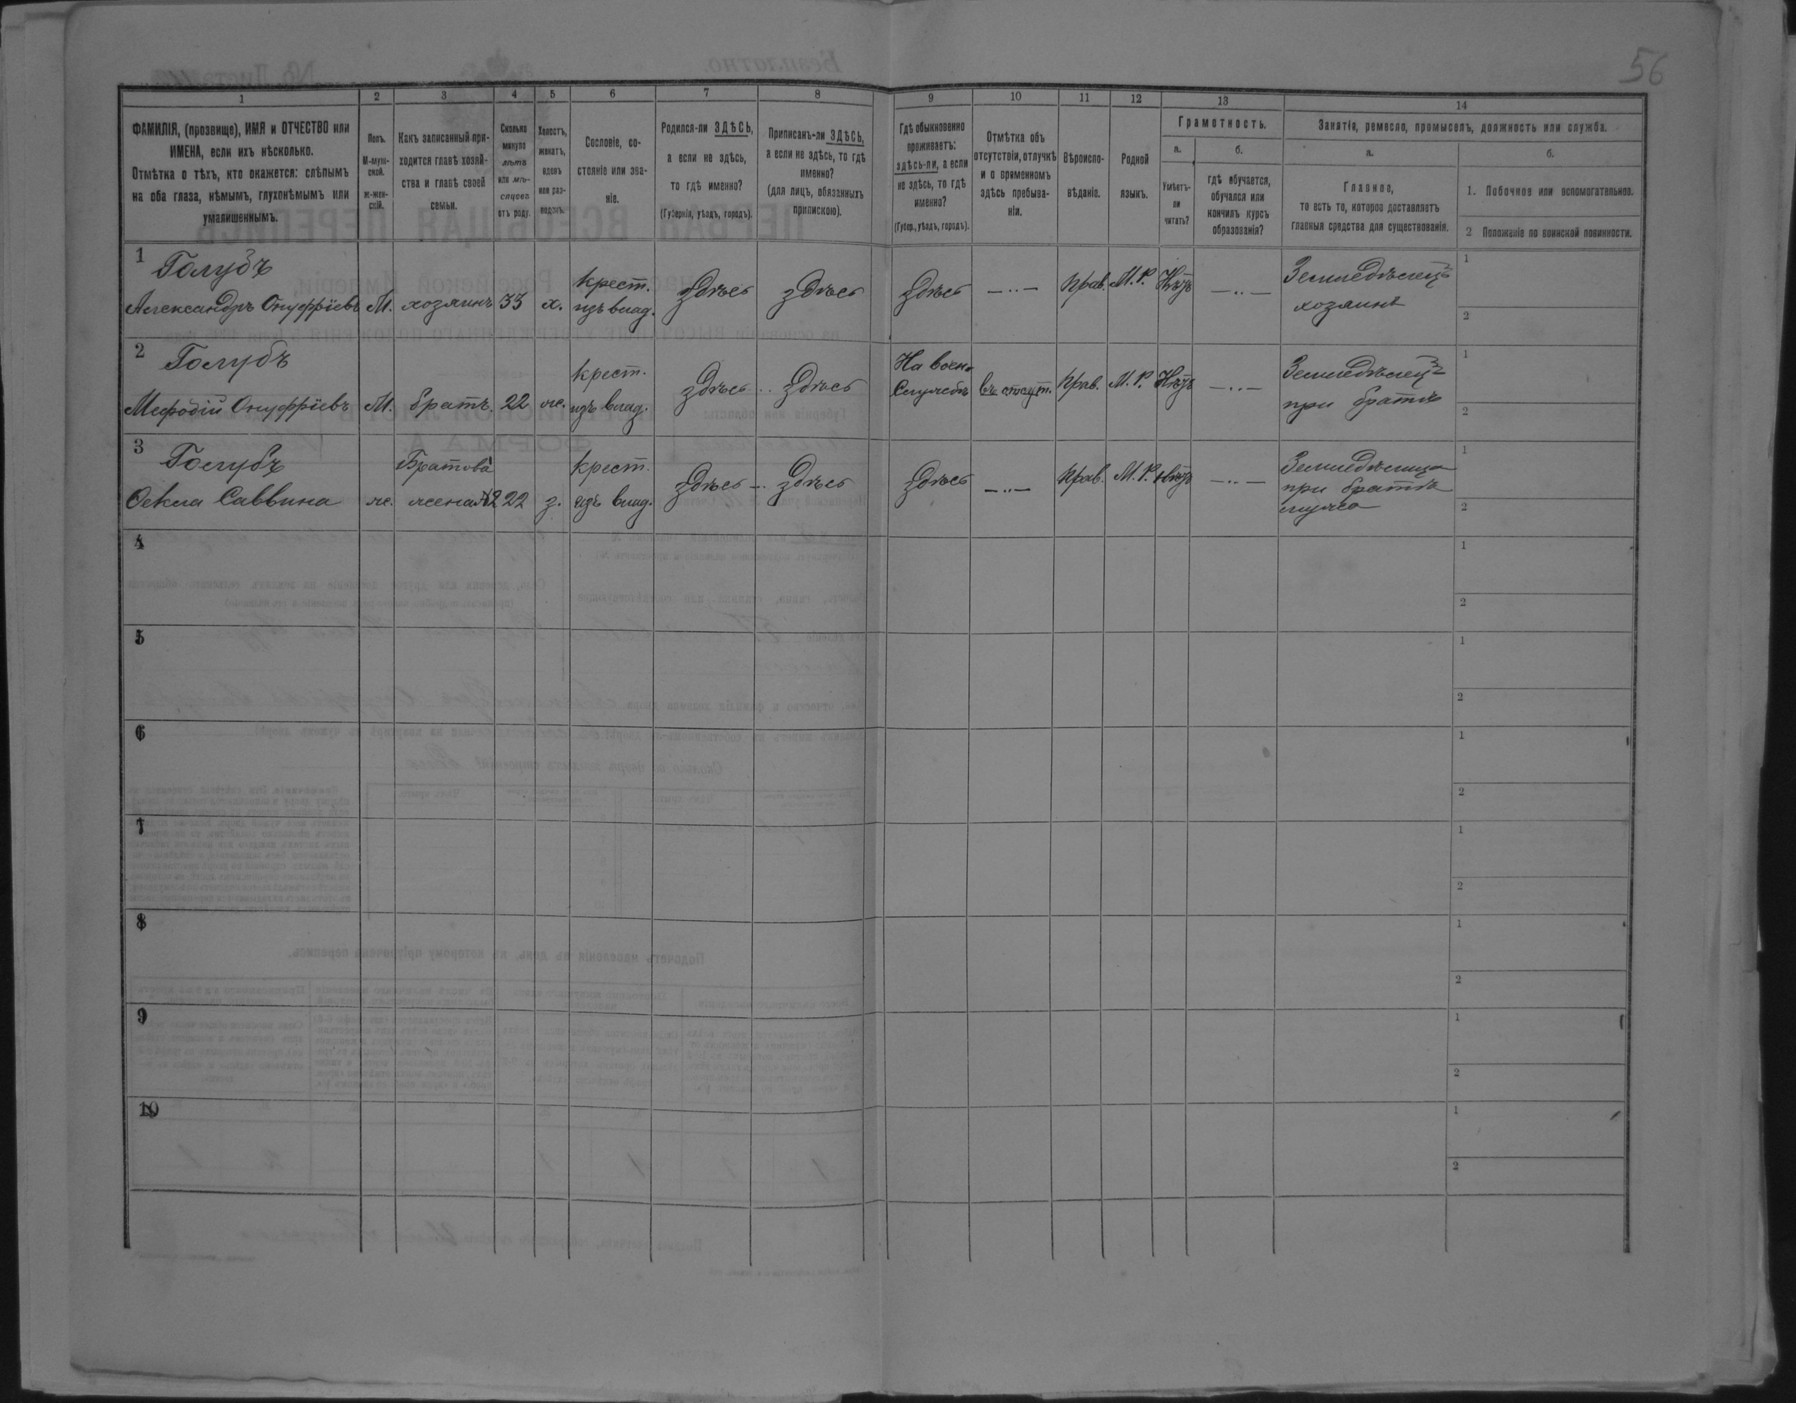 56
1 2 3 4 5 6 7 8 9 10 11 12 13 14
ФАМИЛІЯ, (прозвище), ИМЯ и ОТЧЕСТВО или
ИМЕНА, если ихъ нѣсколько.
Отмѣтка о тѣхъ, кто окажется: слѣпымъ
на оба глаза, нѣмымъ, глухонѣмымъ или
умалишеннымъ.
Полъ.
М-муж-
ской.
Ж-жен-
скій.
Какъ записанный при-
ходится главѣ хозяй-
ства и главѣ своей
семьи.
Сколько
минуло
лѣтъ
или мѣ-
сяцевъ
отъ роду.
Холостъ,
женатъ,
вдовъ
или раз-
веденъ.
Сословіе, со-
стояніе или зва-
ніе.
Родился-ли ЗДѢСЬ,
а если не здѣсь,
то гдѣ именно?
(Губернія, уѣздъ, городъ).
Приписанъ-ли ЗДѢСЬ,
а если не здѣсь, то гдѣ
именно?
(для лицъ, обязанныхъ
припискою).
Гдѣ обыкновенно
проживаетъ:
здѣсь-ли, а если
не здѣсь, то гдѣ
именно?
(Губер., уѣздъ, городъ).
Отмѣтка объ
отсутствіи, отлучкѣ
и о временномъ
здѣсь пребыва-
ніи.
Вѣроиспо-
вѣданіе.
Родной
языкъ.
Грамотность.
а.
Умѣетъ-
ли
читать?
б.
гдѣ обучается,
обучался или
кончилъ курсъ
образованія?
Занятія, ремесло, промыселъ, должность или служба.
а.
Главное,
то есть то, которое доставляетъ
главныя средства для существованія.
б.
1. Побочное или вспомогательное.
2 Положеніе по воинской повинности.
1 Голубъ
Александръ Онуфріевъ М. хозяинъ 33 х. крест. изъ влад. здѣсь здѣсь здѣсь —..— Прав. М.Р. Нѣтъ —..— Земледѣлецъ
хозяинъ
1
2
2 Голубъ
Мефодій Онуфріевъ М. братъ 22 же. крест. изъ влад. здѣсь здѣсь На воен. Службѣ въ отсут. Прав. М.Р. Нѣтъ —..— Земледѣлецъ
при братѣ
1
2
3 Голубъ
Ѳекла Саввина же. Братова жена №2 22 з. крест. изъ влад. здѣсь здѣсь здѣсь —..— Прав. М.Р. Нѣтъ —..— Земледѣлица
при братѣ
мужа
1
2
4
1
2
5
1
2
6
1
2
7
1
2
8
1
2
9
1
2
10
1
2